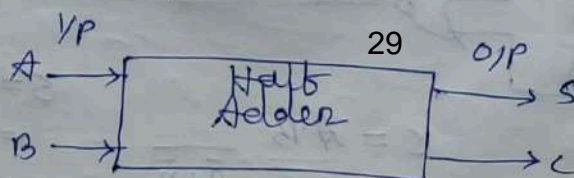 I/P 29 O/P
A Half S
Adder
B C